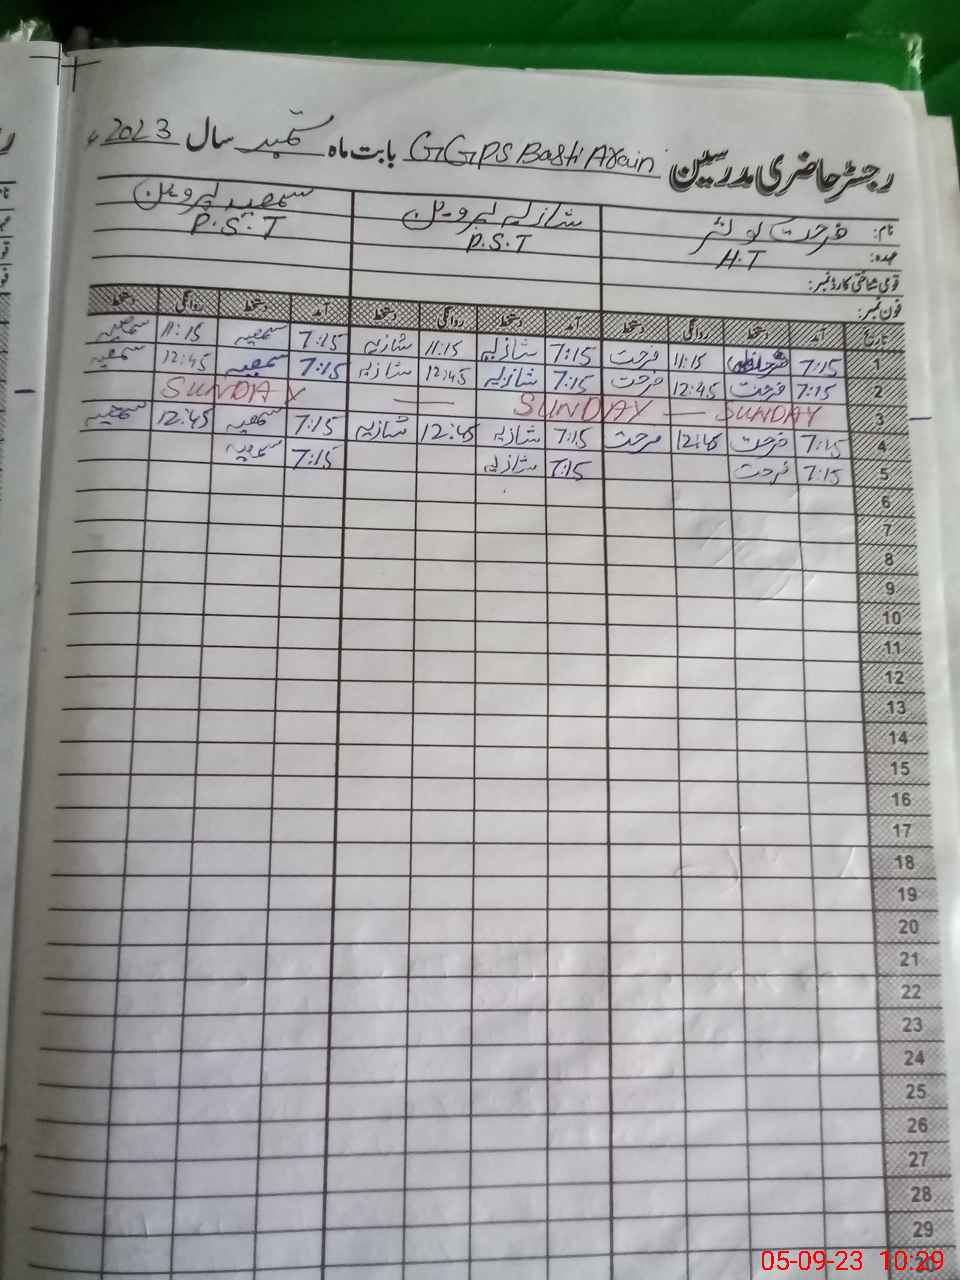 رجسٹر حاضری مدرسین GGPS Basti Arain بابت ماہ ستمبر سال 2023ء
نام: فرحت کوثر شازیہ پروین سمعیہ پروین
عہدہ: H.T P.S.T P.S.T
قومی شناختی کارڈ نمبر:
فون نمبر:
تاریخ آمد دستخط روانگی دستخط آمد دستخط روانگی دستخط آمد دستخط روانگی دستخط
1 7:15 فرحت 11:15 فرحت 7:15 شازیہ 11:15 شازیہ 7:15 سمعیہ 11:15 سمعیہ
2 7:15 فرحت 12:45 فرحت 7:15 شازیہ 12:45 شازیہ 7:15 سمعیہ 12:45 سمعیہ
3 SUNDAY — SUNDAY — SUNDAY
4 7:15 فرحت 12:45 فرحت 7:15 شازیہ 12:45 شازیہ 7:15 سمعیہ 12:45 سمعیہ
5 7:15 فرحت 7:15 شازیہ 7:15 سمعیہ
6
7
8
9
10
11
12
13
14
15
16
17
18
19
20
21
22
23
24
25
26
27
28
29
05-09-23 10:29